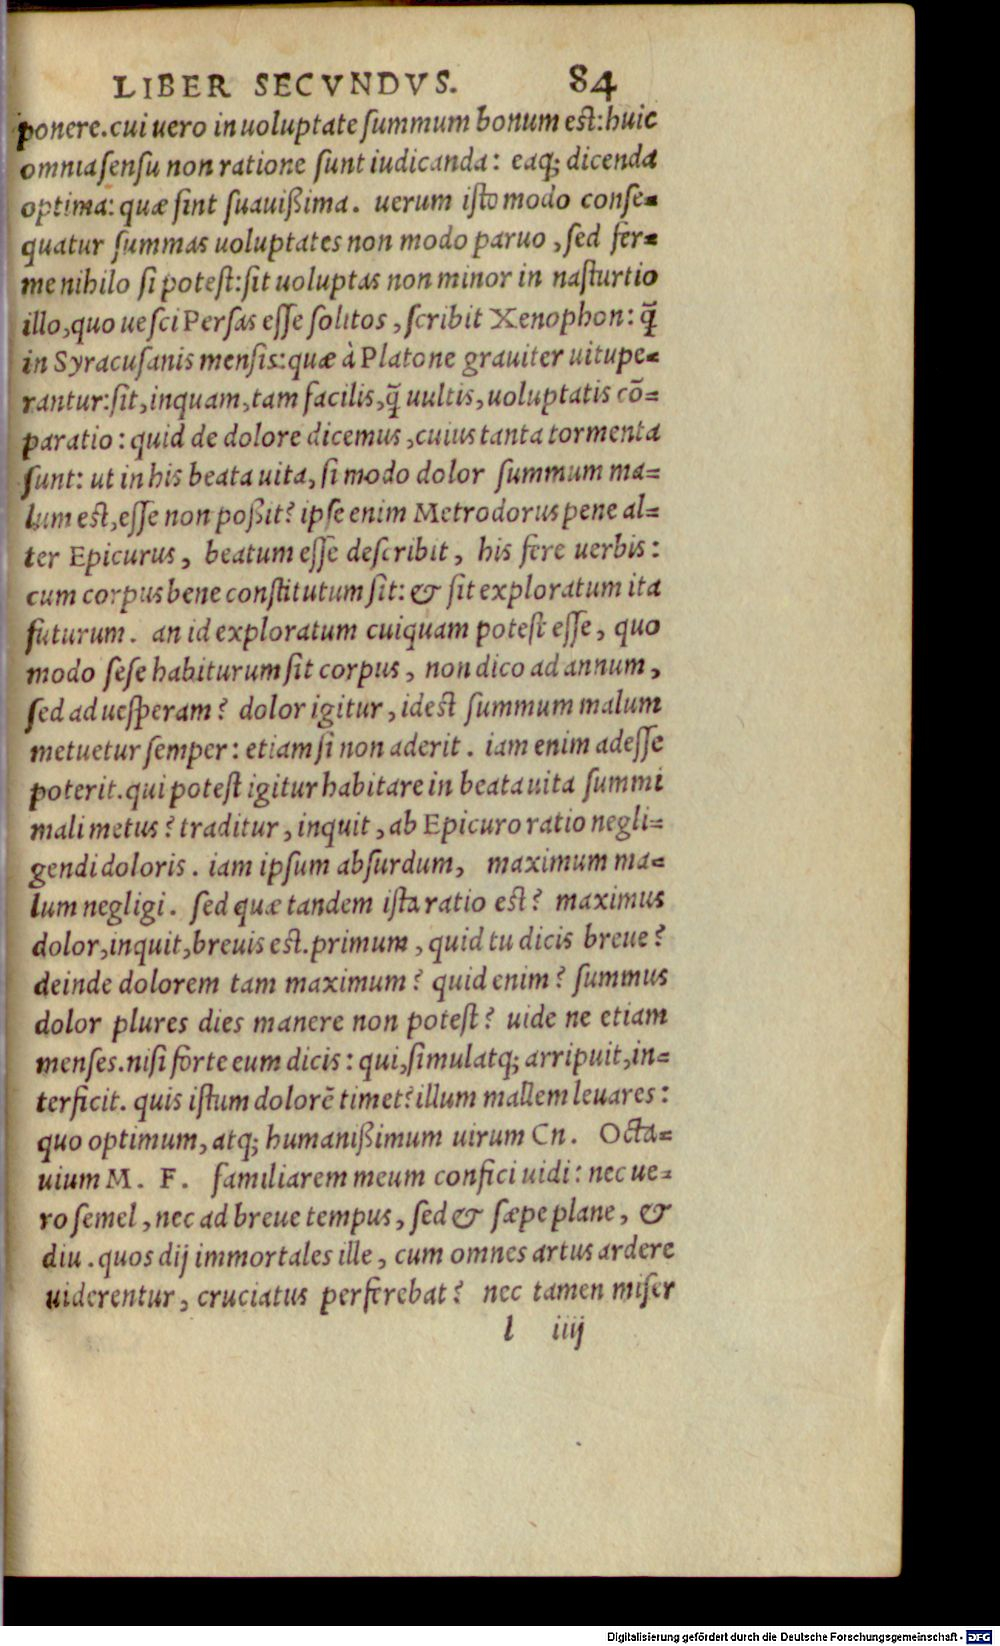 LIBER SECVNDVS. 84
ponere. cui uero in uoluptate summum bonum est: huic
omnia sensu non ratione sunt iudicanda: eaq; dicenda
optima: quæ sint suauißima. uerum isto modo conse=
quatur summas uoluptates non modo paruo, sed fer=
me nihilo si potest: sit uoluptas non minor in nasturtio
illo, quo uesci Persas esse solitos, scribit Xenophon: q̃
in Syracusanis mensis: quæ à Platone grauiter uitupe=
rantur: sit, inquam, tam facilis, q̃ uultis, uoluptatis cõ=
paratio: quid de dolore dicemus, cuius tanta tormenta
sunt: ut in his beata uita, si modo dolor summum ma=
lum est, esse non poßit? ipse enim Metrodorus pene al=
ter Epicurus, beatum esse describit, his fere uerbis:
cum corpus bene constitutum sit: & sit exploratum ita
futurum. an id exploratum cuiquam potest esse, quo
modo sese habiturum sit corpus, non dico ad annum,
sed ad uesperam? dolor igitur, idest summum malum
metuetur semper: etiam si non aderit. iam enim adesse
poterit. qui potest igitur habitare in beata uita summi
mali metus? traditur, inquit, ab Epicuro ratio negli=
gendi doloris. iam ipsum absurdum, maximum ma=
lum negligi. sed quæ tandem ista ratio est? maximus
dolor, inquit, breuis est. primum, quid tu dicis breue?
deinde dolorem tam maximum? quid enim? summus
dolor plures dies manere non potest? uide ne etiam
menses. nisi forte eum dicis: qui, simulatq; arripuit, in=
terficit. quis istum dolorẽ timet? illum mallem leuares:
quo optimum, atq; humanißimum uirum Cn. Octa=
uium M. F. familiarem meum confici uidi: nec ue=
ro semel, nec ad breue tempus, sed & sæpe plane, &
diu. quos dij immortales ille, cum omnes artus ardere
uiderentur, cruciatus perferebat? nec tamen miser
l iiij
Digitalisierung gefördert durch die Deutsche Forschungsgemeinschaft - DFG